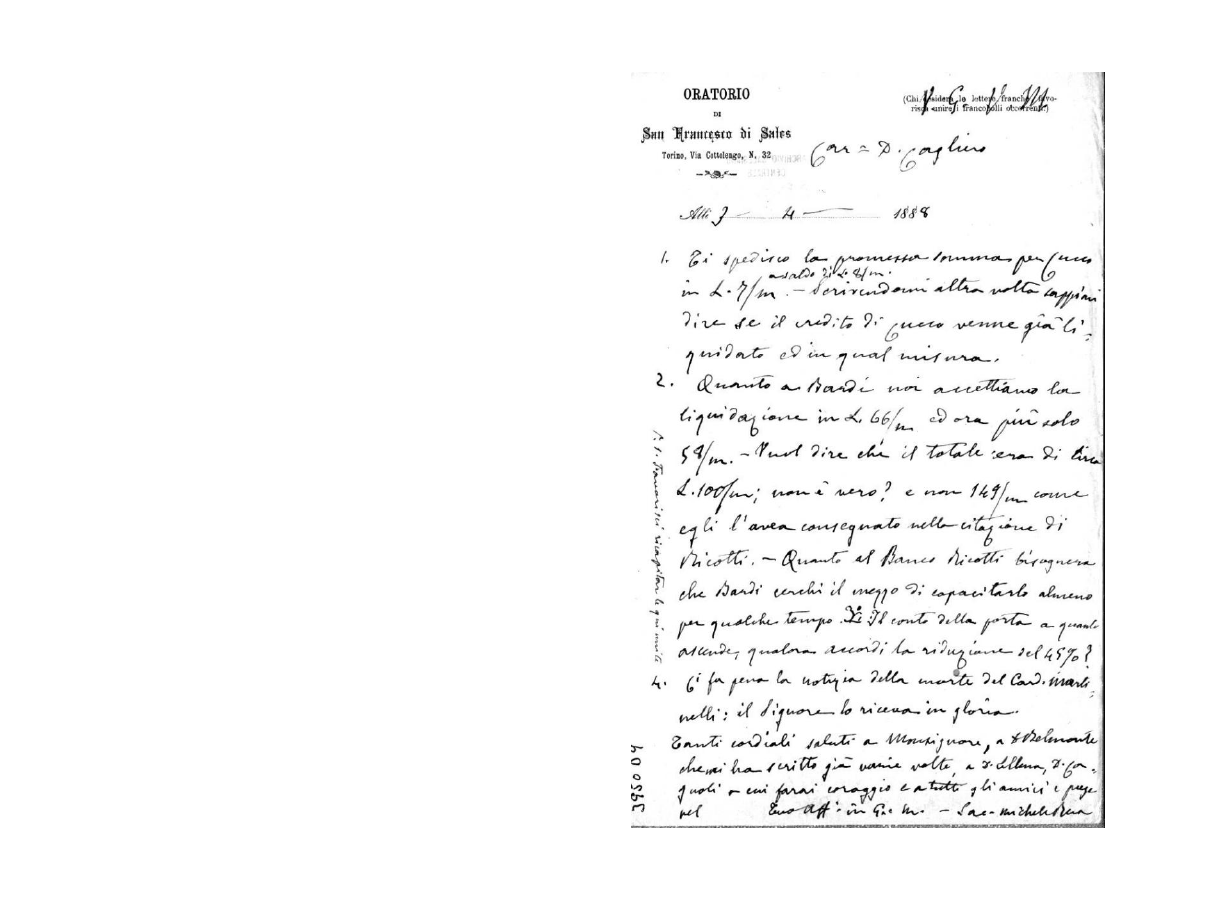 ORATORIO
DI
San Francesco di Sales
Torino, Via Cottolengo, N. 32
(Chi desidera le lettere franche favo-
risca unire i francobolli occorrenti.)
V. G. M.
Car = D. Cagliero
Alli 7 — 4 — 1888
1. Ti spedisco la promessa somma per Cucco
a saldo di L. 8/m.
in L. 7/m. – Scrivendomi altra volta sappimi
dire se il credito di Cucco venne già li-
quidato ed in qual misura.
2. Quanto a Bardi noi accettiamo la
liquidazione in L. 66/m ed ora più solo
58/m. – Vuol dire che il totale era di circa
L. 100/m; non è vero? e non 149/m come
egli l'avea consegnato nella citazione di
Ricotti. – Quanto al Banco Ricotti bisognera
che Bardi cerchi il mezzo di capacitarlo almeno
per qualche tempo. 3. Il conto della porta a quanto
ascende, qualora accordi la riduzione del 45%?
4. Ci fa pena la notizia della morte del Card. Marti-
nelli: il Signore lo riceva in gloria.
Tanti cordiali saluti a Monsignore, a D. Belmonte
che mi ha scritto già varie volte, a D. Ca-
gnoli a cui farai coraggio e a tutti gli amici e prega
pel Tuo Aff. in G. e M. – Sac. Michele Rua
P. S. Favorisci ricapitar le qui unite
3950 D4